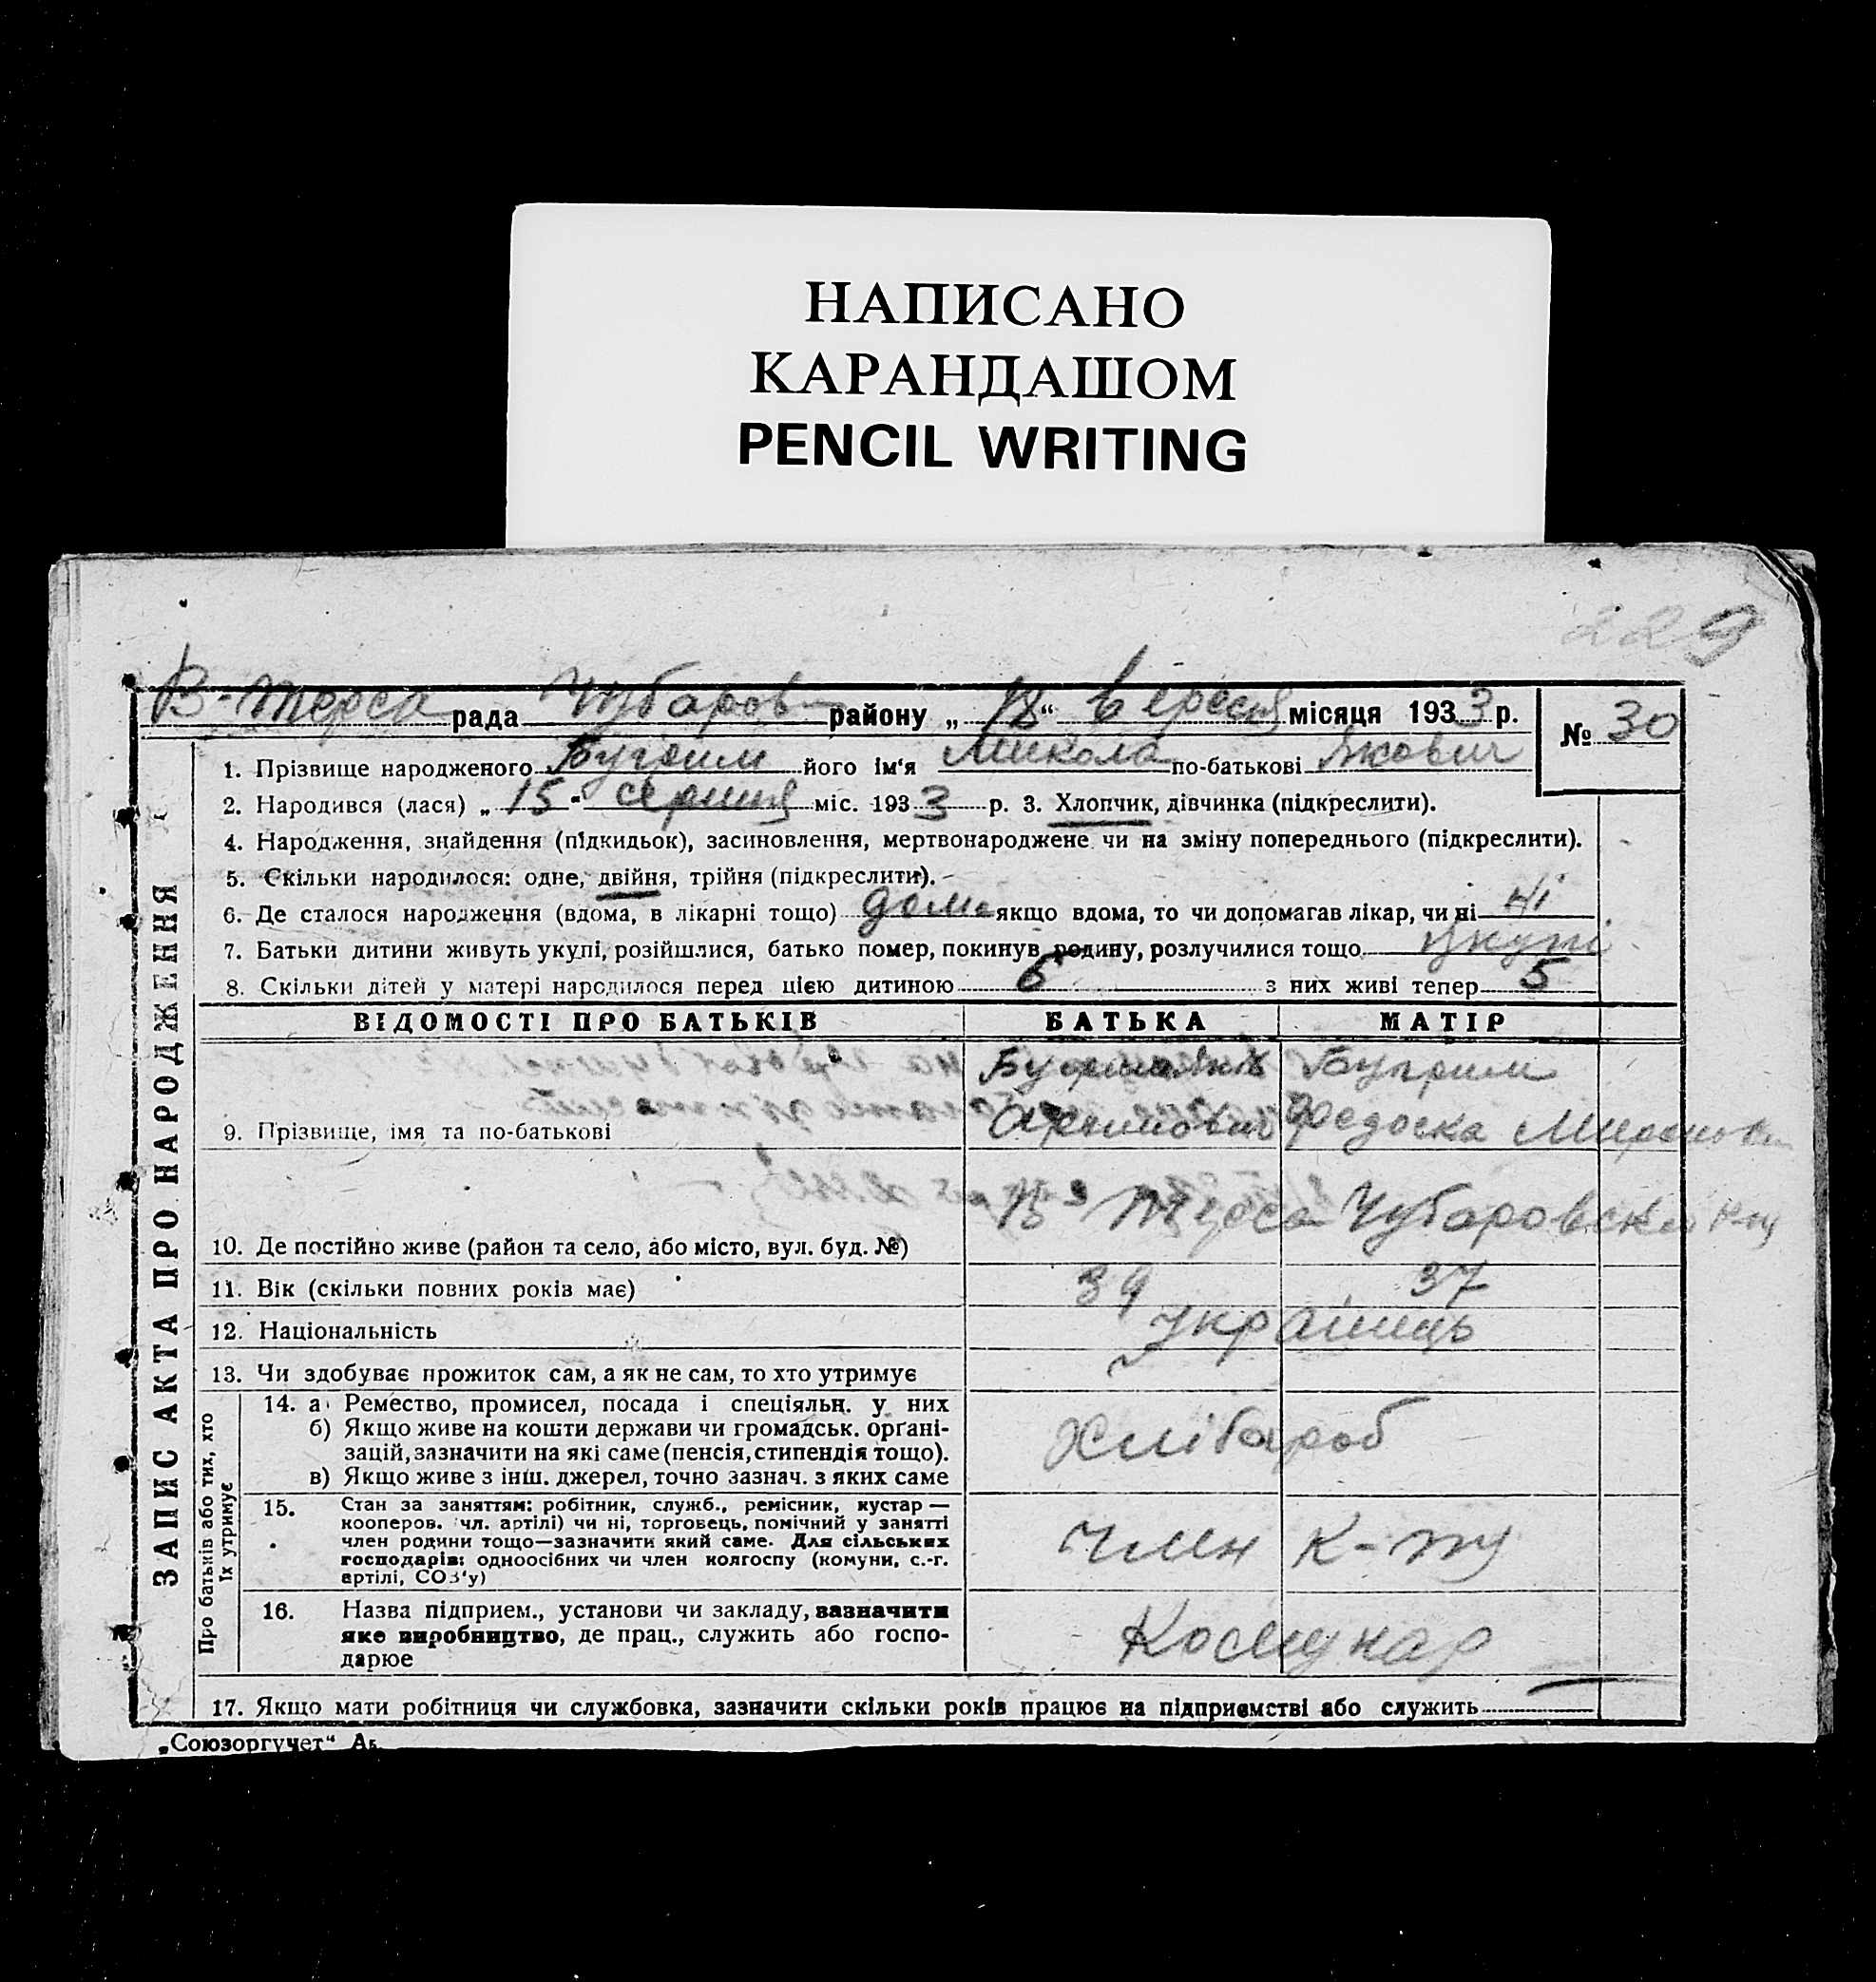 НАПИСАНО
КАРАНДАШОМ
PENCIL WRITING
229
В-Терса рада Чубаров району „ “ вересня місяця 1933 р.
№ 30
1. Прізвище народженого Бугрим його ім'я Микола по-батькові Якович
2. Народився (лася) „15“ серпня міс. 1933 р. 3. Хлопчик, дівчинка (підкреслити).
4. Народження, знайдення (підкидьок), засиновлення, мертвонароджене чи на зміну попереднього (підкреслити).
5. Скільки народилося: одне, двійня, трійня (підкреслити).
6. Де сталося народження (вдома, в лікарні тощо) дома якщо вдома, то чи допомагав лікар, чи ні ні
7. Батьки дитини живуть укупі, розійшлися, батько помер, покинув родину, розлучилися тощо укупі
8. Скільки дітей у матері народилося перед цією дитиною 6 з них живі тепер 5
ВІДОМОСТІ ПРО БАТЬКІВ БАТЬКА МАТІР
9. Прізвище, імя та по-батькові Бугрим Бугрим
Федоска
10. Де постійно живе (район та село, або місто, вул. буд. №) В-Терса Чубаровски
11. Вік (скільки повних років має) 39 37
12. Національність українець
13. Чи здобуває прожиток сам, а як не сам, то хто утримує
14. а) Ремество, промисел, посада і спеціяльн. у них
б) Якщо живе на кошти держави чи громадськ. орґані-
зацій, зазначити на які саме (пенсія, стипендія тощо).
в) Якщо живе з інш. джерел, точно зазнач. з яких саме
Хлібароб
15. Стан за заняттям: робітник, служб., ремісник, кустар —
кооперов. (чл. артілі) чи ні, торговець, помічний у занятті
член родини тощо—зазначити який саме. Для сільських
господарів: одноосібних чи член колгоспу (комуни, с.-г.
артілі, СОЗ'у)
Член к-пу
16. Назва підприєм., установи чи закладу, зазначити
яке виробництво, де прац., служить або госпо-
дарює
Комунар
17. Якщо мати робітниця чи службовка, зазначити скільки років працює на підприємстві або служить
ЗАПИС АКТА ПРО НАРОДЖЕННЯ
Про батьків або тих, хто
їх утримує
„Союзоргучет“